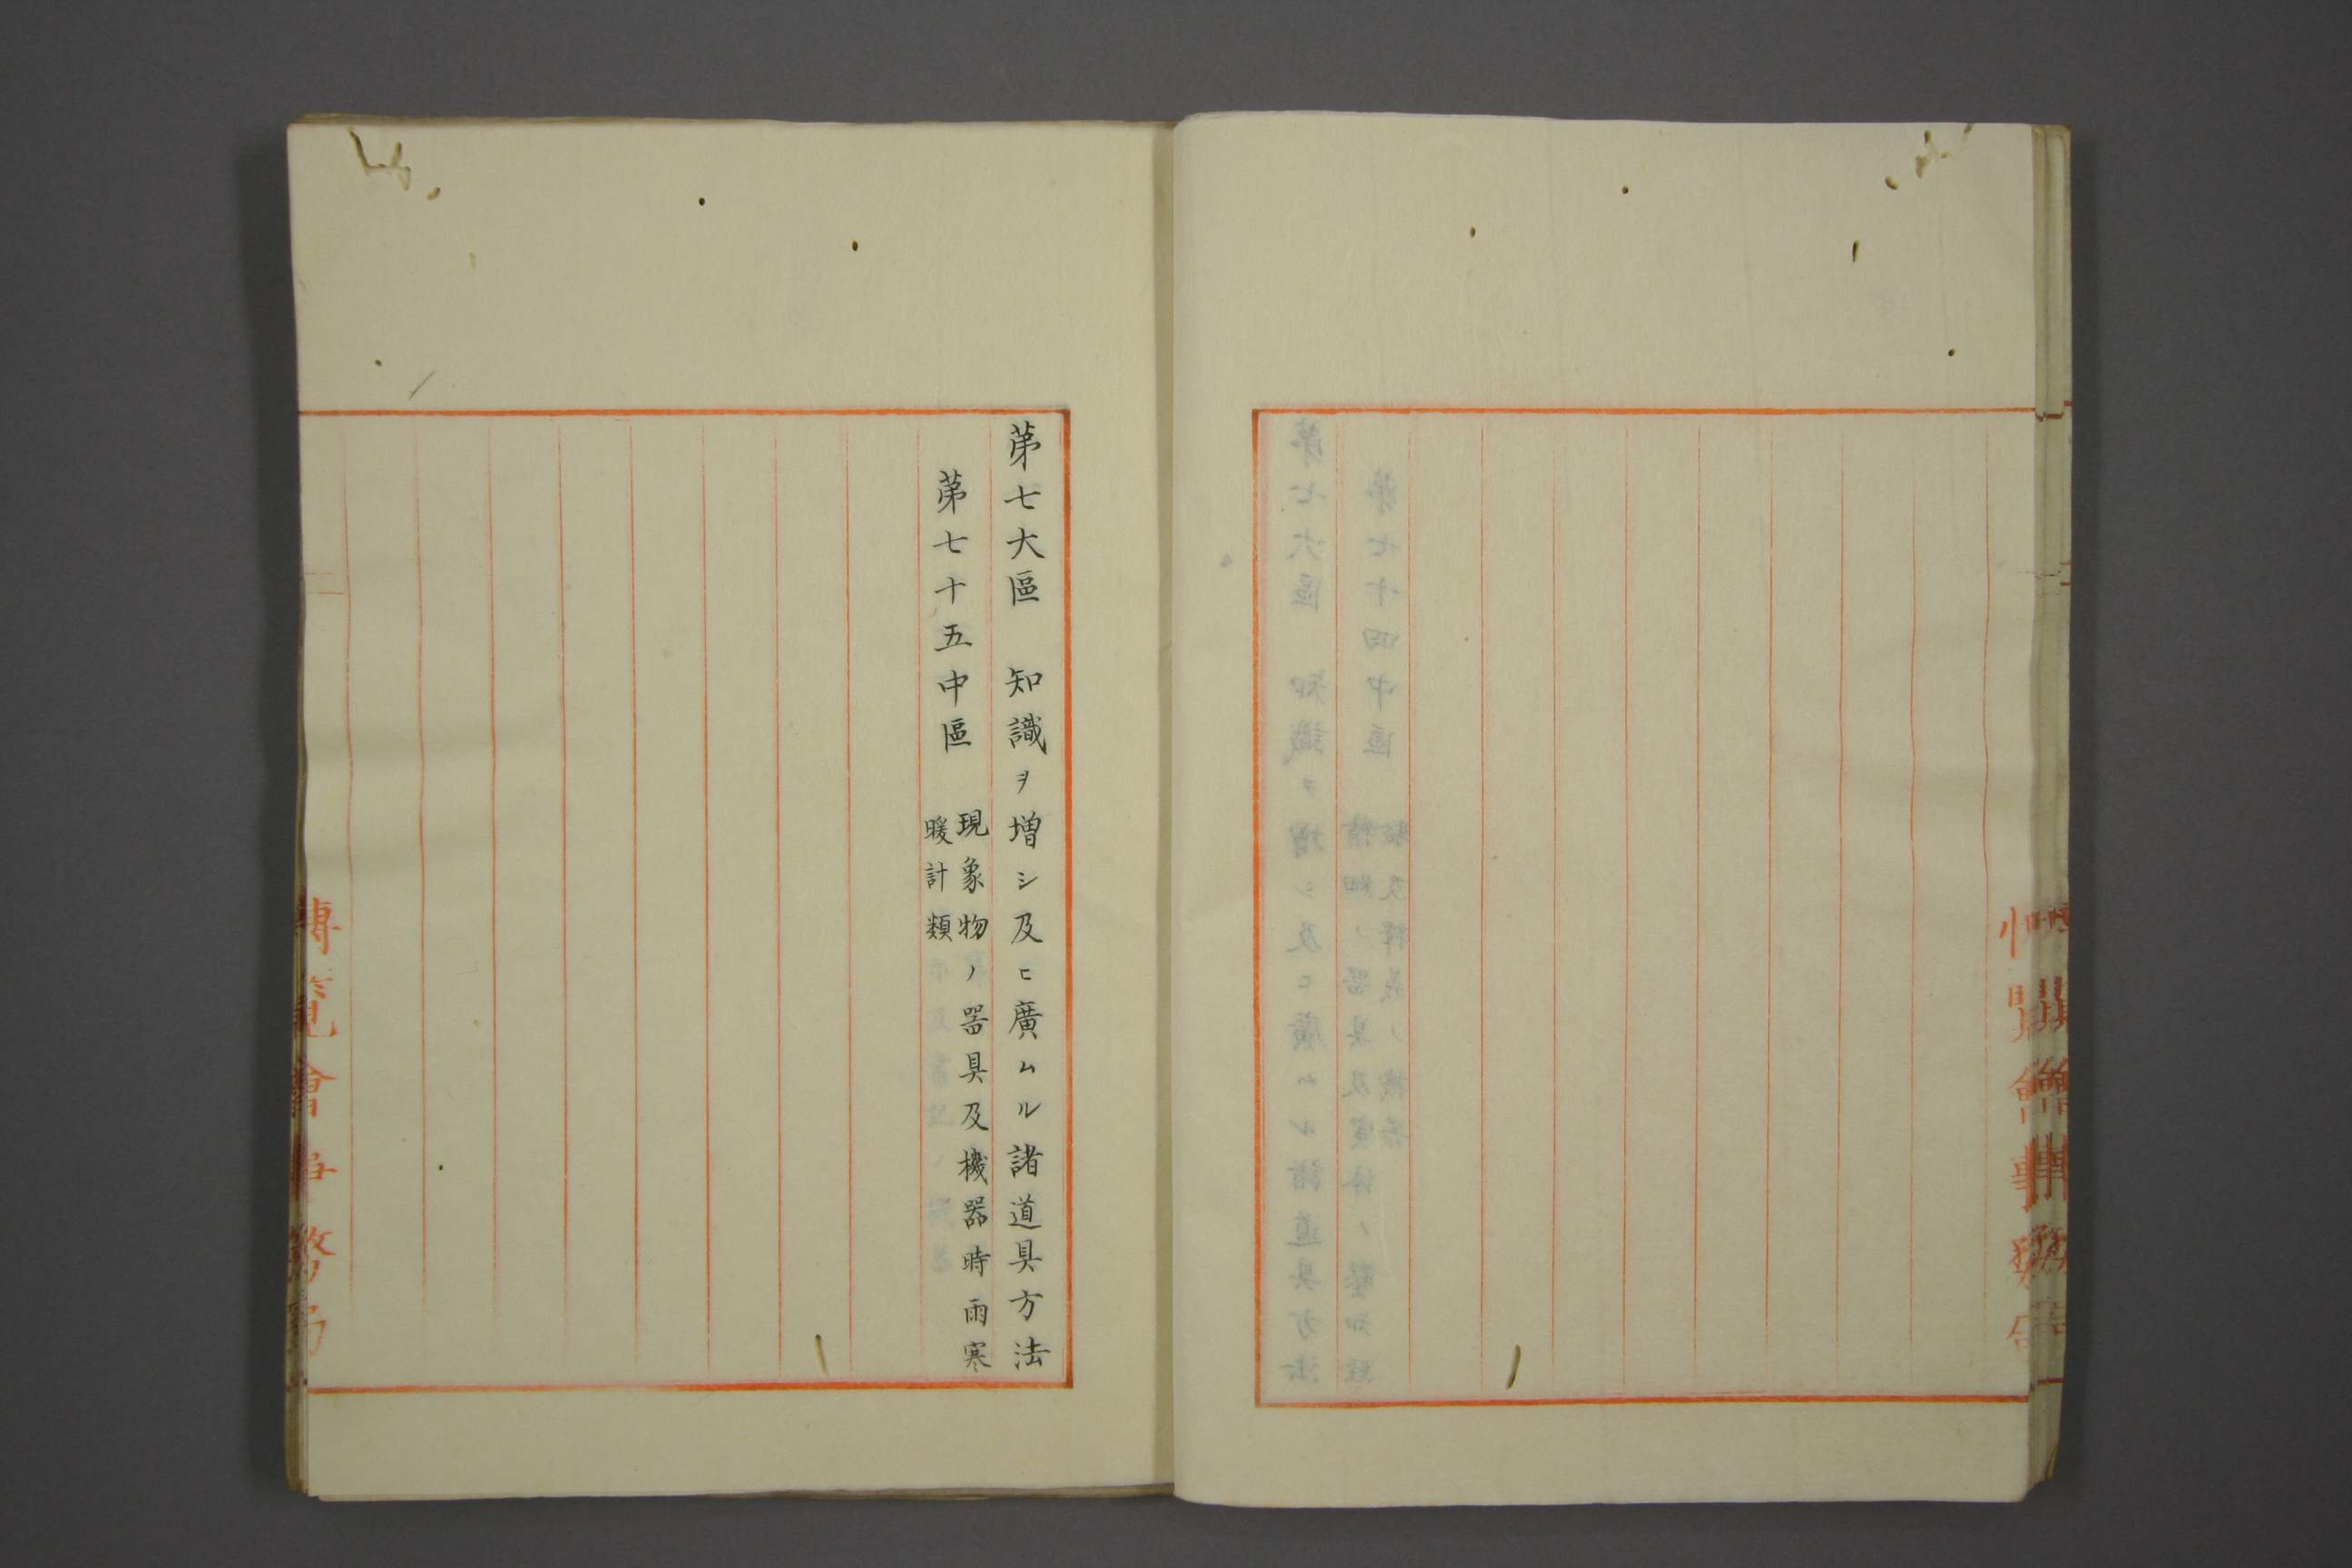 第七大區　知識ヲ増シ及ヒ廣ムル諸道具方法
第七十五中區　現象物ノ器具及機器時雨寒
暖計類
博覧會事務局